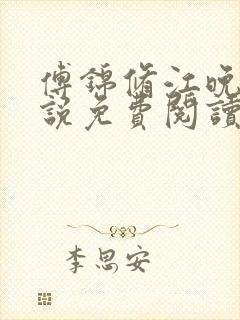 傅錦脩江晚
說免費閱讀
李思安